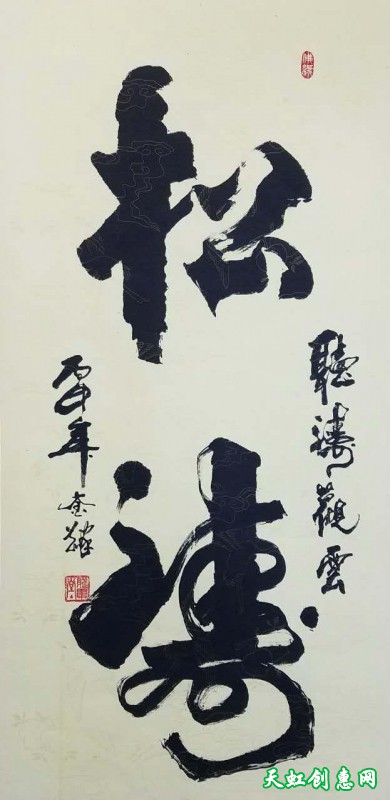 松濤
聽濤觀雲
丙申年
天虹创惠网